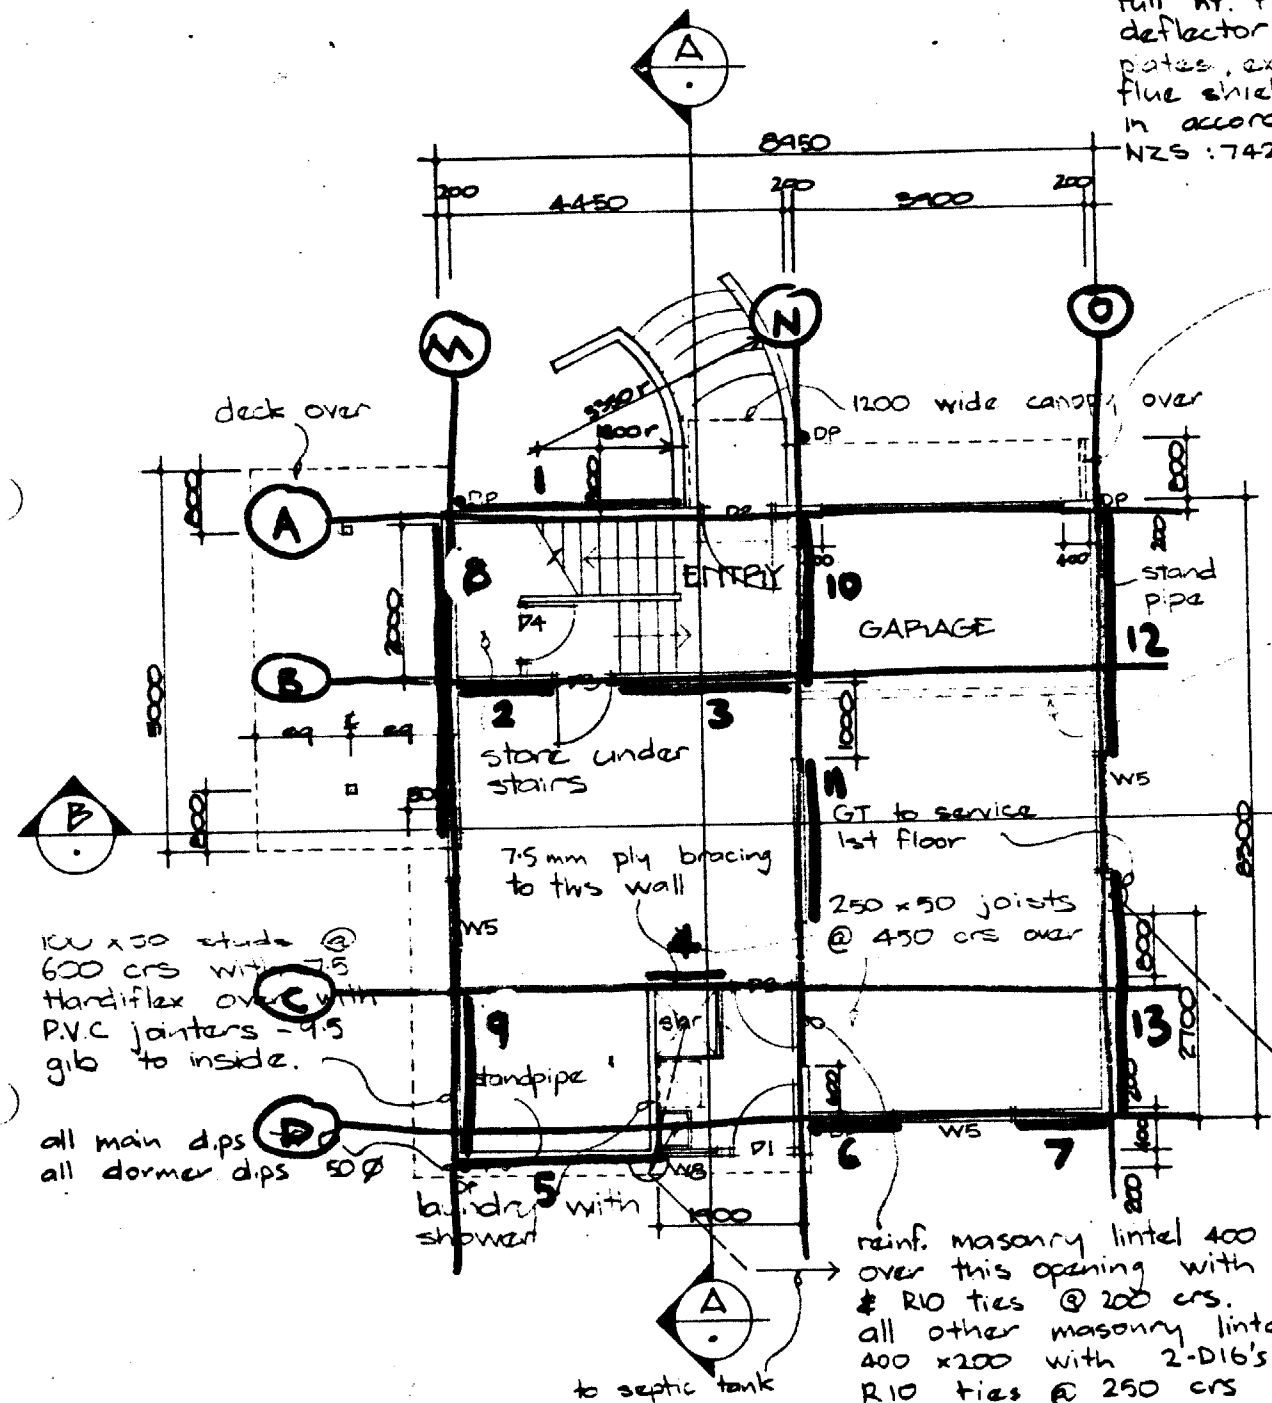 A
full ht.
deflector
plates, ex
flue shiel
in accord
NZS :742
8450
200
4450
200
3900
200
M
N
O
deck over
3350 r
1800 r
1200 wide canopy over
DP
800
1
DP
800
DP
A
D2
200
400
8
ENTRY
10
stand
pipe
2000
D4
GARAGE
12
B
5000
eq
¢
eq
2
3
1000
store under
stairs
W5
11
B
800
GT to service
1st floor
8300
7.5 mm ply bracing
to this wall
250 x 50 joists
@ 450 crs over
W5
4
100 x 50 studs @
600 crs with 7.5
Hardiflex over with
P.V.C jointers - 9.5
gib to inside.
C
800
9
13
2700
standpipe
600
200
all main d.ps
all dormer d.ps 50 Ø
D
D1
6
W5
7
400
200
DP
5
W8
laundry with
shower
1900
reinf. masonry lintel 400
over this opening with
R10 ties @ 200 crs.
all other masonry lintel
400 x200 with 2-D16's
R10 ties @ 250 crs
A
to septic tank